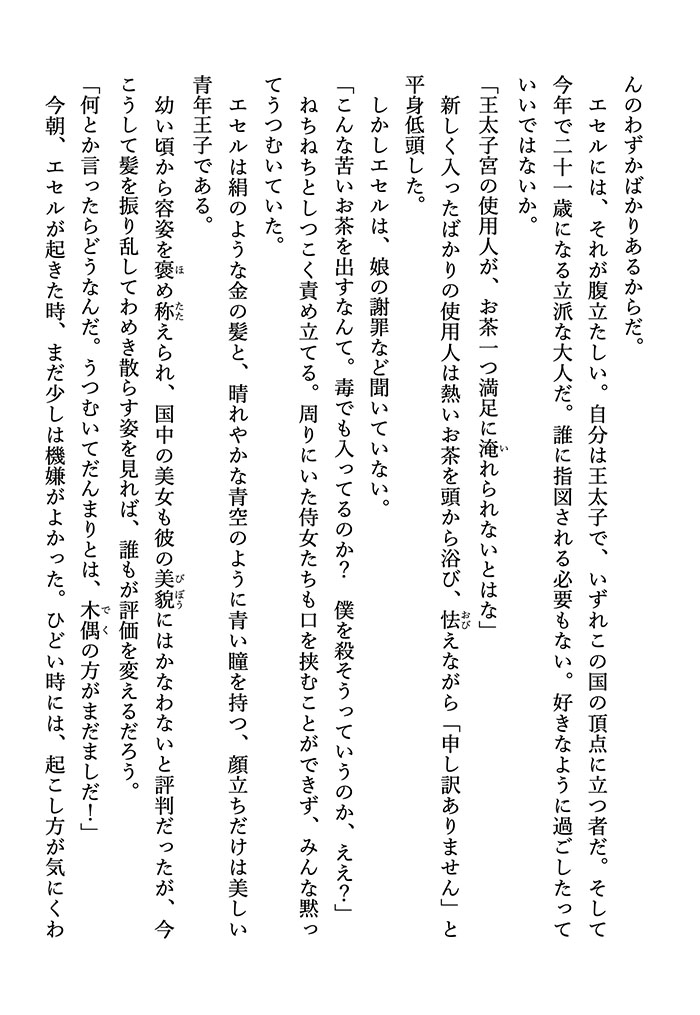 んのわずかばかりあるからだ。
エセルには、それが腹立たしい。自分は王太子で、いずれこの国の頂点に立つ者だ。そして
今年で二十一歳になる立派な大人だ。誰に指図される必要もない。好きなように過ごしたって
いいではないか。
「王太子宮の使用人が、お茶一つ満足に淹れられないとはな」
新しく入ったばかりの使用人は熱いお茶を頭から浴び、怯えながら「申し訳ありません」と
平身低頭した。
しかしエセルは、娘の謝罪など聞いていない。
「こんな苦いお茶を出すなんて。毒でも入ってるのか？　僕を殺そうっていうのか、ええ？」
ねちねちとしつこく責め立てる。周りにいた侍女たちも口を挟むことができず、みんな黙っ
てうつむいていた。
エセルは絹のような金の髪と、晴れやかな青空のように青い瞳を持つ、顔立ちだけは美しい
青年王子である。
幼い頃から容姿を褒め称えられ、国中の美女も彼の美貌にはかなわないと評判だったが、今
こうして髪を振り乱してわめき散らす姿を見れば、誰もが評価を変えるだろう。
「何とか言ったらどうなんだ。うつむいてだんまりとは、木偶の方がまだましだ！」
今朝、エセルが起きた時、まだ少しは機嫌がよかった。ひどい時には、起こし方が気にくわ